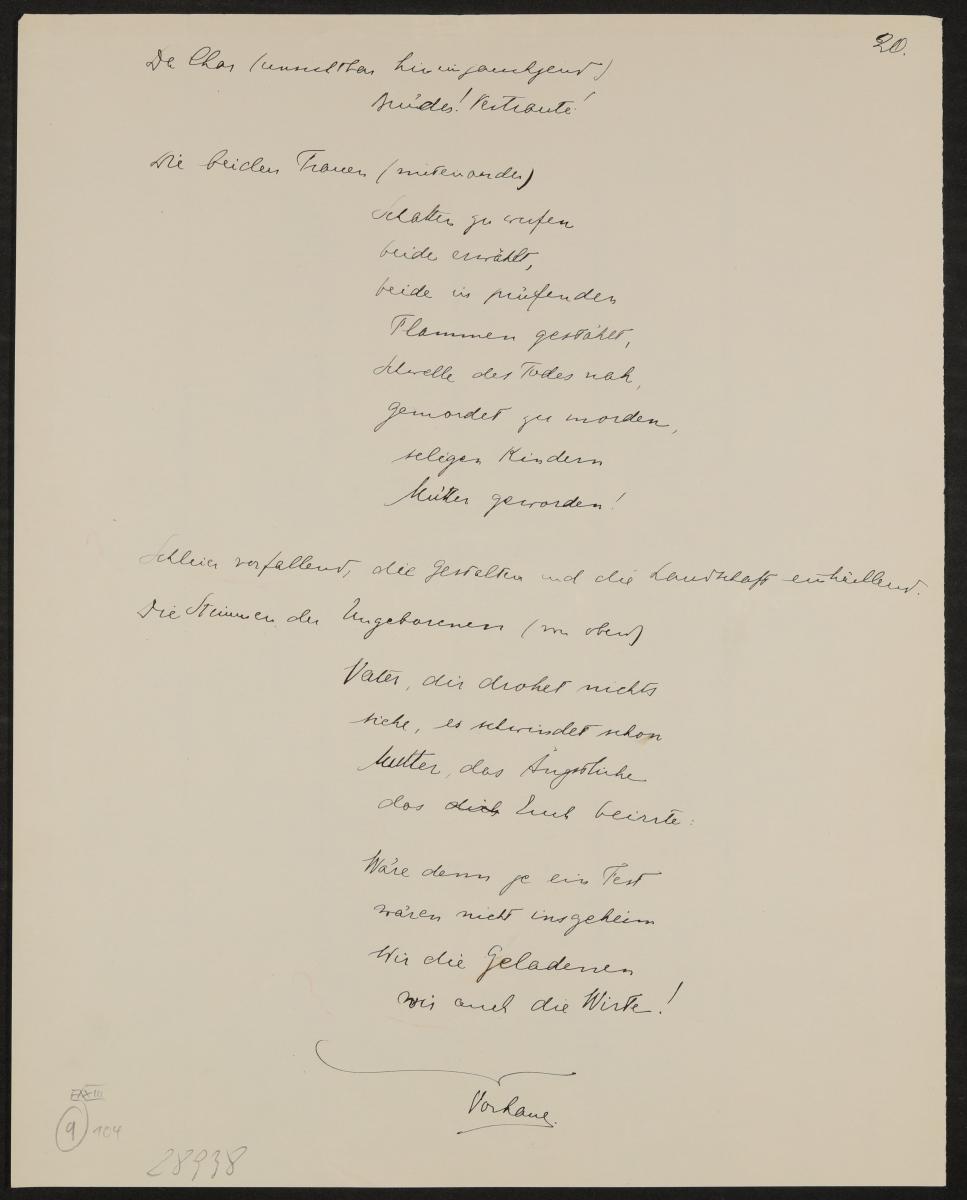 20.
Der Chor (unsichtbar hineinjauchzend)
Brüder! Vertraute!
Die beiden Frauen (miteinander)
Schatten zu werfen
beide erwählt,
beide in prüfenden
Flammen gestählt,
Schwelle des Todes nah,
gemordet zu morden,
seligen Kindern
Mütter geworden!
Schleier vorfallend, die Gestalten und die Landschaft einhüllend.
Die Stimmen der Ungeborenen (von oben)
Vater, dir drohet nichts
siehe, es schwindet schon
Mutter, das Ängstliche
das dich Euch beirrte:
Wäre denn je ein Fest
wären nicht insgeheim
Wir die Geladenen
wir auch die Wirte!
Vorhang.
9
104
28938